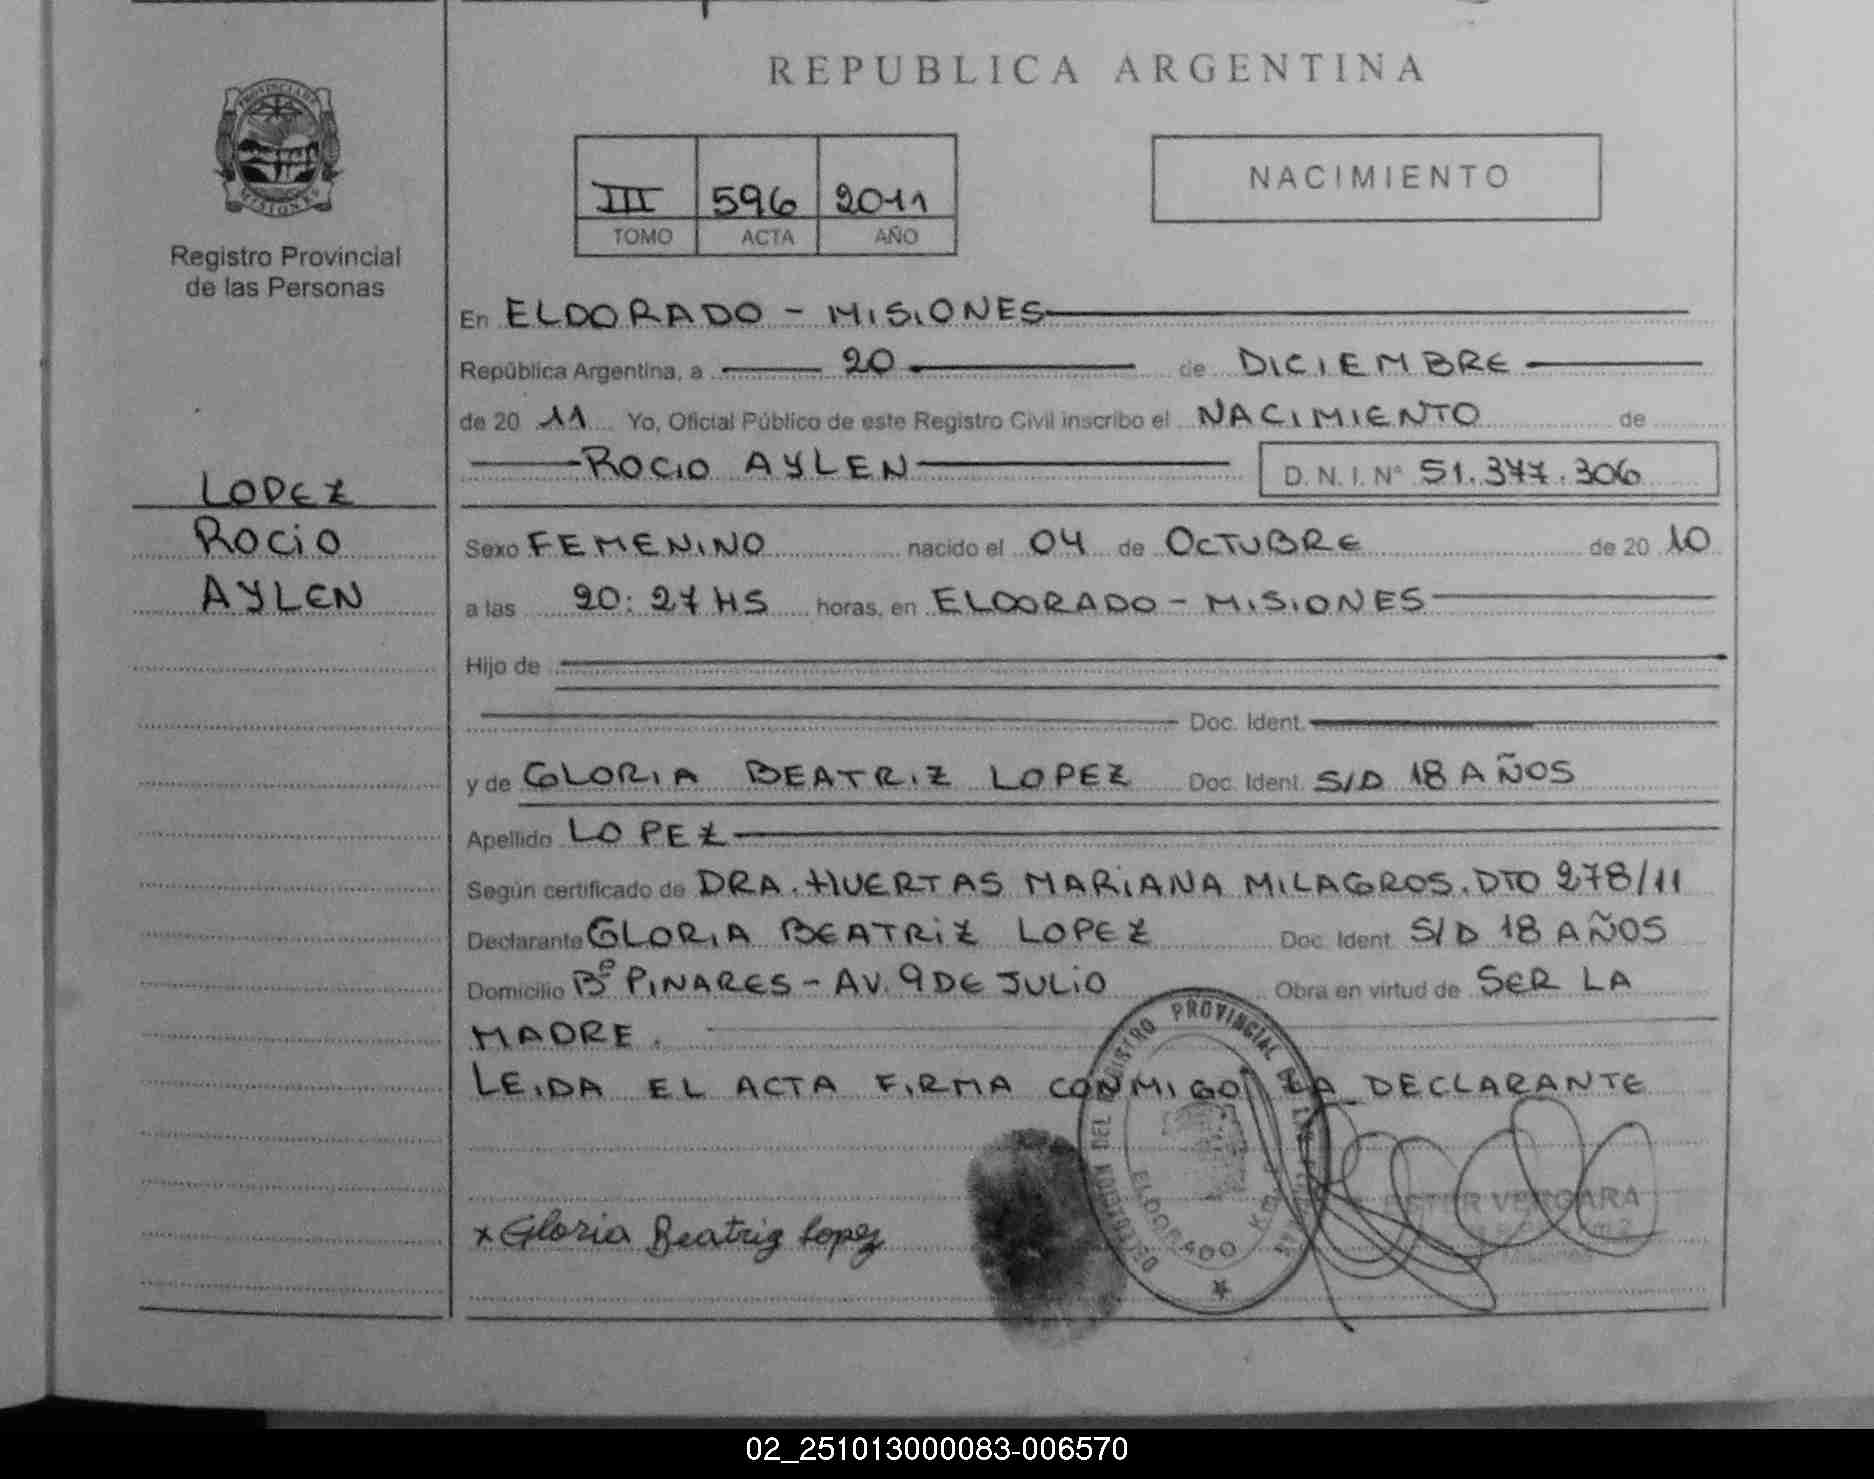 REPUBLICA ARGENTINA
PROVINCIA DE
MISIONES
Registro Provincial
de las Personas
III 596 2011
TOMO ACTA AÑO
NACIMIENTO
En ELDORADO - MISIONES
República Argentina, a 20 de DICIEMBRE
de 20 11 Yo, Oficial Público de este Registro Civil inscribo el NACIMIENTO de
ROCIO AYLEN D. N. I. Nº 51.377.306
LOPEZ
ROCIO
AYLEN
Sexo FEMENINO nacido el 04 de OCTUBRE de 20 10
a las 20:27 HS horas, en ELDORADO - MISIONES
Hijo de
Doc. Ident.
y de GLORIA BEATRIZ LOPEZ Doc. Ident. S/D 18 AÑOS
Apellido LOPEZ
Según certificado de DRA. HUERTAS MARIANA MILAGROS. DTO 278/11
Declarante GLORIA BEATRIZ LOPEZ Doc. Ident. S/D 18 AÑOS
Domicilio Bº PINARES - AV. 9 DE JULIO Obra en virtud de SER LA
MADRE.
LEIDA EL ACTA FIRMA CONMIGO LA DECLARANTE
x Gloria Beatriz Lopez
DEL REGISTRO PROVINCIAL DE LAS
ELDORADO Km
ESTER VERGARA
02_251013000083-006570